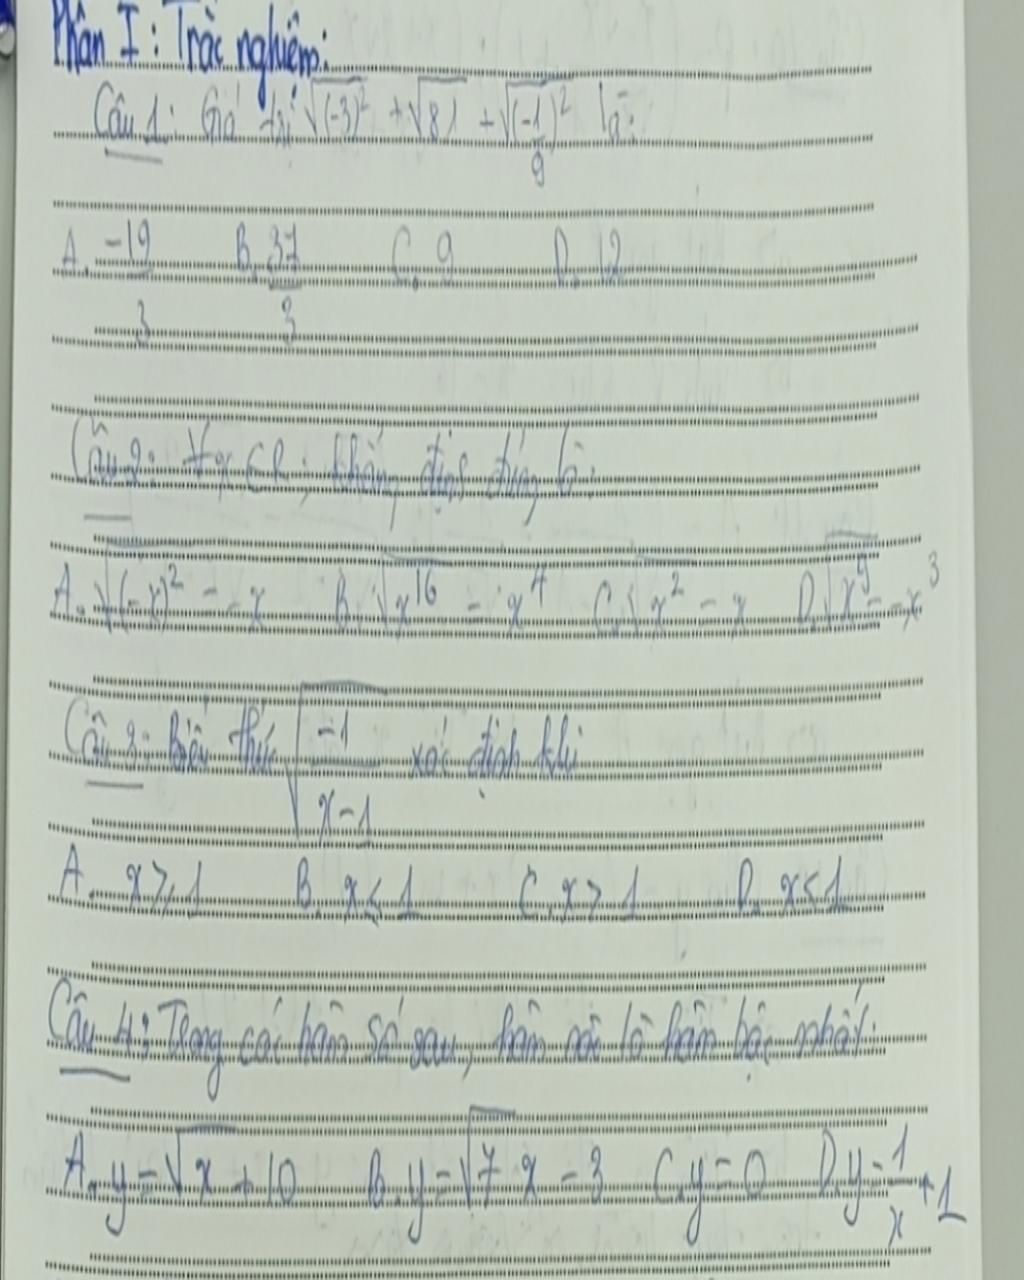 Phần I: Trắc nghiệm:
Câu 1: Giá trị √(-3)² + √81 + √(-1/9)² là:
A. -19/3 B. 37/3 C. 9 D. 12
Câu 2: ∀x ∈ R; khẳng định đúng là:
A. √(-x)² = -x B. √x¹⁶ = x⁴ C. √x² = x D. √x⁹ = -x³
Câu 3: Biểu thức √-1/x-1 xác định khi
A. x ≥ 1 B. x ≤ 1 C. x > 1 D. x < 1
Câu 4: Trong các hàm số sau, hàm nào là hàm bậc nhất:
A. y = √x + 10 B. y = √7 x - 3 C. y = 0 D. y = 1/x + 1